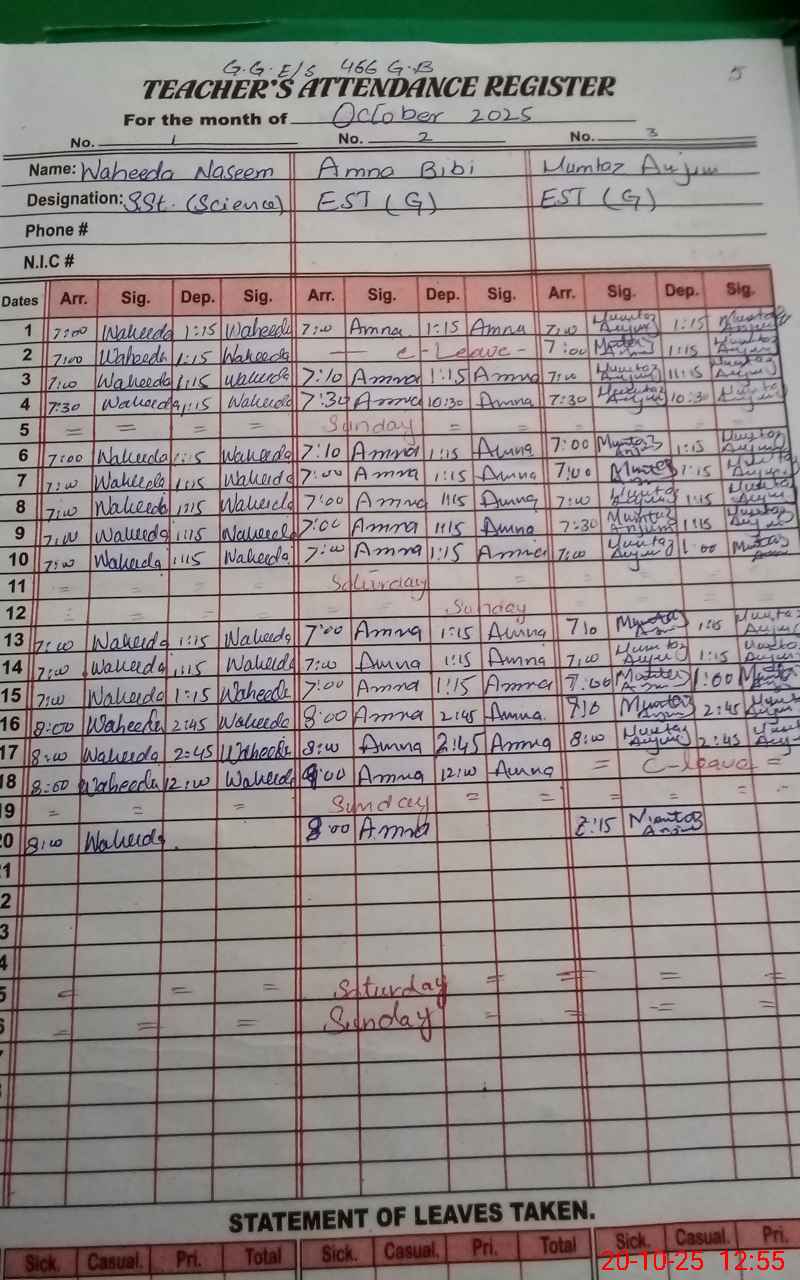 G.G.E/S 466 G.B
5
TEACHER'S ATTENDANCE REGISTER
For the month of October 2025
No. 1 No. 2 No. 3
Name: Waheeda Naseem Amna Bibi Mumtaz Anjum
Designation: S.St. (Science) EST (G) EST (G)
Phone #
N.I.C #
Dates Arr. Sig. Dep. Sig. Arr. Sig. Dep. Sig. Arr. Sig. Dep. Sig.
1 7:00 Waheeda 1:15 Waheeda 7:00 Amna 1:15 Amna 7:00 Mumtaz Anjum 1:15 Mumtaz Anjum
2 7:00 Waheeda 1:15 Waheeda — C-Leave - 7:00 Mumtaz Anjum 1:15 Mumtaz Anjum
3 7:00 Waheeda 1:15 Waheeda 7:10 Amna 1:15 Amna 7:00 Mumtaz Anjum 1:15 Mumtaz Anjum
4 7:30 Waheeda 1:15 Waheeda 7:30 Amna 10:30 Amna 7:30 Mumtaz Anjum 10:30 Mumtaz Anjum
5 = = = = Sunday = =
6 7:00 Waheeda 1:15 Waheeda 7:10 Amna 1:15 Amna 7:00 Mumtaz Anjum 1:15 Mumtaz Anjum
7 7:00 Waheeda 1:15 Waheeda 7:00 Amna 1:15 Amna 7:00 Mumtaz 1:15 Mumtaz Anjum
8 7:00 Waheeda 1:15 Waheeda 7:00 Amna 1:15 Amna 7:00 Mumtaz Anjum 1:15 Mumtaz Anjum
9 7:00 Waheeda 1:15 Waheeda 7:00 Amna 1:15 Amna 7:30 Mumtaz Anjum 1:15 Mumtaz Anjum
10 7:00 Waheeda 1:15 Waheeda 7:00 Amna 1:15 Amna 7:00 Mumtaz Anjum 1:00 Mumtaz Anjum
11 = = = = Saturday = =
12 = = = = Sunday
13 7:00 Waheeda 1:15 Waheeda 7:00 Amna 1:15 Amna 7:10 Mumtaz Anjum 1:15 Mumtaz Anjum
14 7:00 Waheeda 1:15 Waheeda 7:00 Amna 1:15 Amna 7:00 Mumtaz Anjum 1:15 Mumtaz Anjum
15 7:00 Waheeda 1:15 Waheeda 7:00 Amna 1:15 Amna 7:00 Mumtaz Anjum 1:00 Mumtaz Anjum
16 8:00 Waheeda 2:45 Waheeda 8:00 Amna 2:45 Amna Mumtaz Anjum 2:45 Mumtaz Anjum
17 8:00 Waheeda 2:45 Waheeda 8:00 Amna 2:45 Amna 8:00 Mumtaz Anjum 2:45 Mumtaz Anjum
18 8:00 Waheeda 12:00 Waheeda 8:00 Amna 12:00 Amna = C-leave =
19 = = = Sunday = = = = =
20 8:00 Waheeda 8:00 Amna Mumtaz Anjum
1
2
3
4
5 = = = Saturday = = = =
6 = = = Sunday = = = =
STATEMENT OF LEAVES TAKEN.
Sick. Casual. Pri. Total Sick. Casual. Pri. Total Sick. Casual. Pri.
20-10-25 12:55